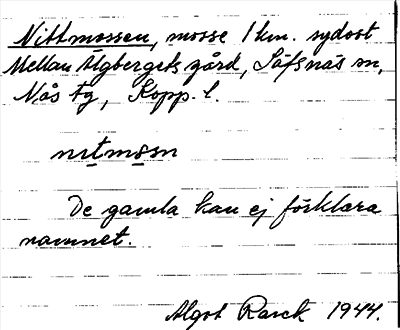 Nittmossen, mosse 1 km. sydost
Mellan Älgbergets gård, Säfsnäs sn,
Nås tg, Kopp. l.
nıtmåsn
De gamla kan ej förklara
namnet.
Algot Rarck 1944.